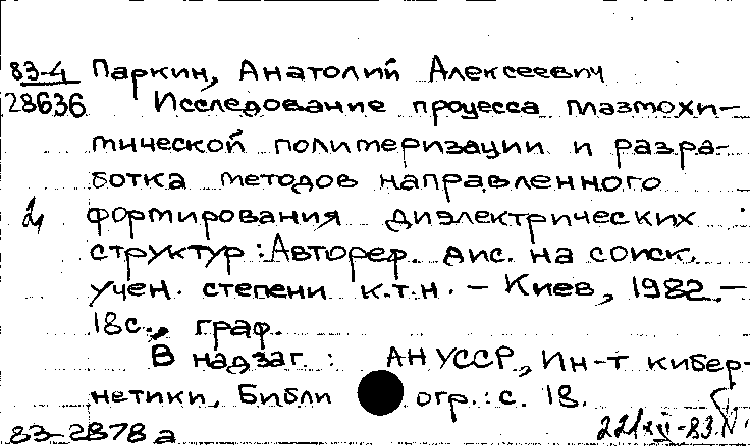 83-4 Паркин, Анатолий Алексеевич
28636 Исследование процесса плазмохи-
мической полимеризации и разра-
ботка методов направленного
формирования диэлектрических
структур : Автореф. дис. на соиск.
учен. степени к.т.н. - Киев, 1982. -
18 с., граф.
В надзаг. : АН УССР, Ин-т кибер-
нетики, Библиогр. : с. 18.
83-2878а